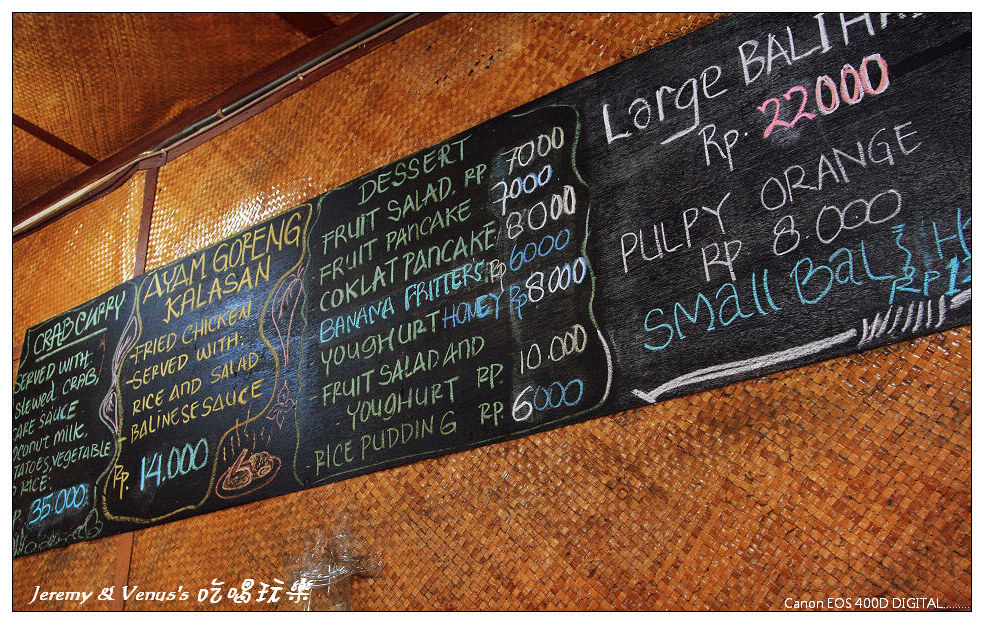 CRAB CURRY
SERVED WITH:
Slewed CRAB,
SAUCE
MILK,
VEGETABLE
RICE:
35.000
AYAM GORENG
KALASAN
-FRIED CHICKEN
-SERVED WITH:
RICE AND SALAD
-BALINESE SAUCE
Rp. 14.000
DESSERT
FRUIT SALAD. RP 7000
-FRUIT PANCAKE 7000
COKLAT PANCAKE 8000
BANANA FRITTERS Rp 6000
YOUGHURT HONEY Rp 8.000
-FRUIT SALAD AND
YOUGHURT RP. 10.000
-RICE PUDDING RP. 6000
Large BALI
Rp. 22000
PULPY ORANGE
RP 8.000
SMall BaLi H
Rp 1
Jeremy & Venus's 吃喝玩樂
Canon EOS 400D DIGITAL........